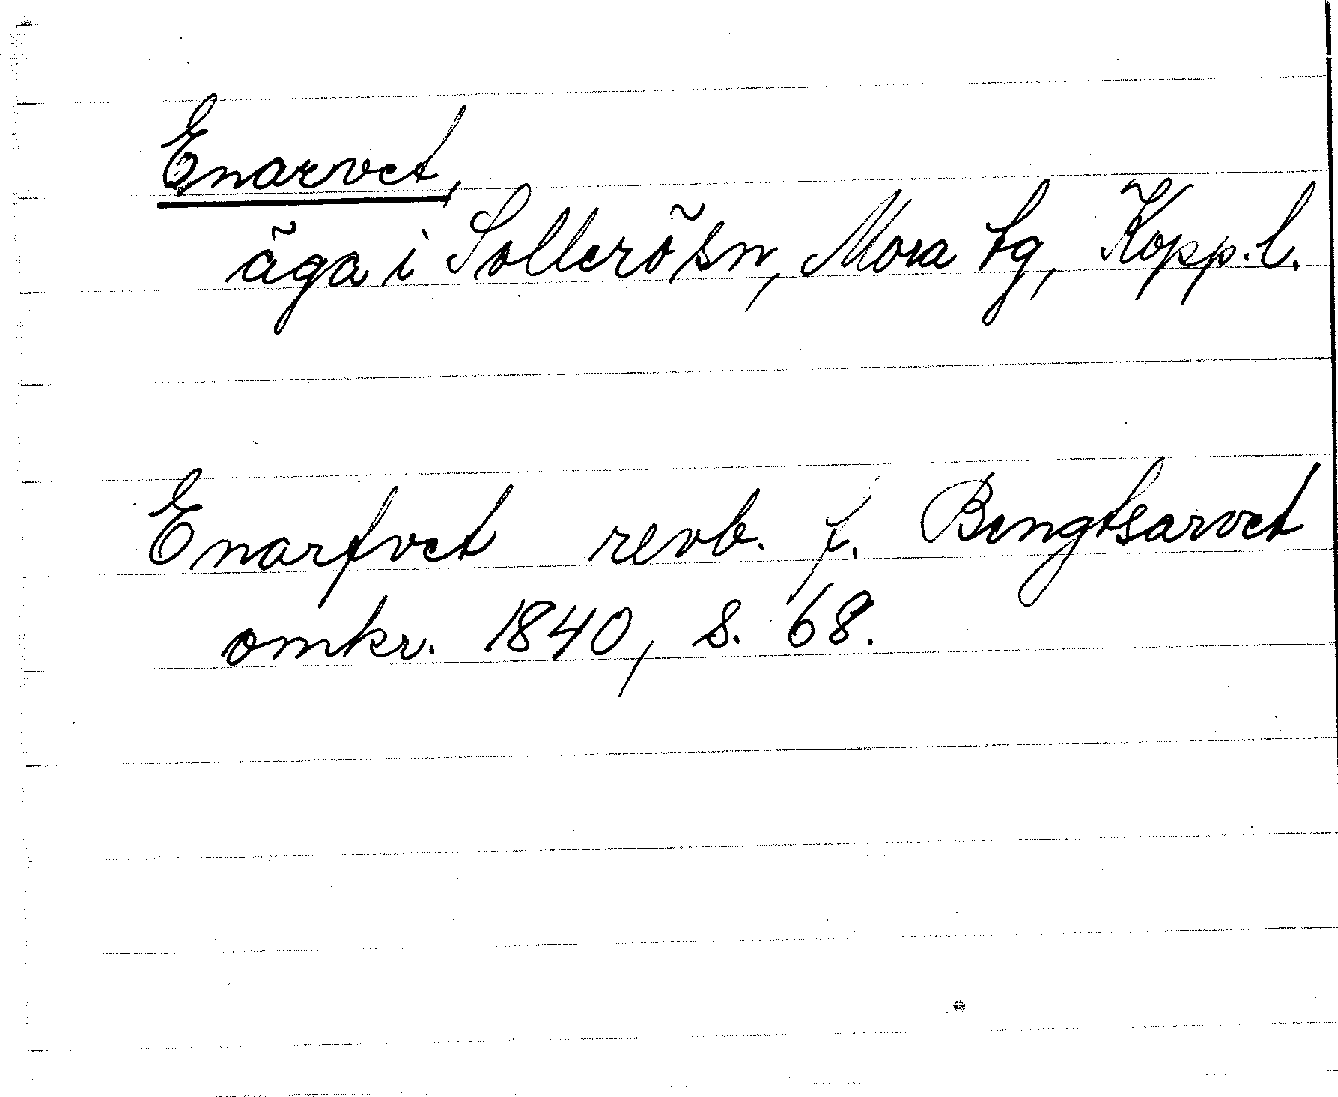 Enarvet,
äga i Sollerö sn, Mora tg, Kopp. l.
Enarfvet revb. f. Bengtsarvet
omkr. 1840, s. 68.